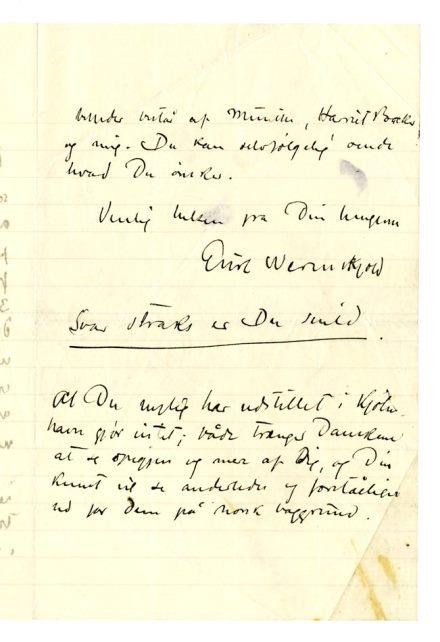 af Munthe, Harriet Backer
og mig. Du kan selvfølgelig sende
hvad Du ønsker.
Venlig hilsen fra Din hengivne
Erik Werenskjold
Svar straks er Du snild.
At Du nylig har udstillet i Kjøben-
havn gjør intet; både trænger Danskene
at se mer af Dig, og Din
kunst vil se anderledes og forståeligere
ud for dem på norsk baggrund.